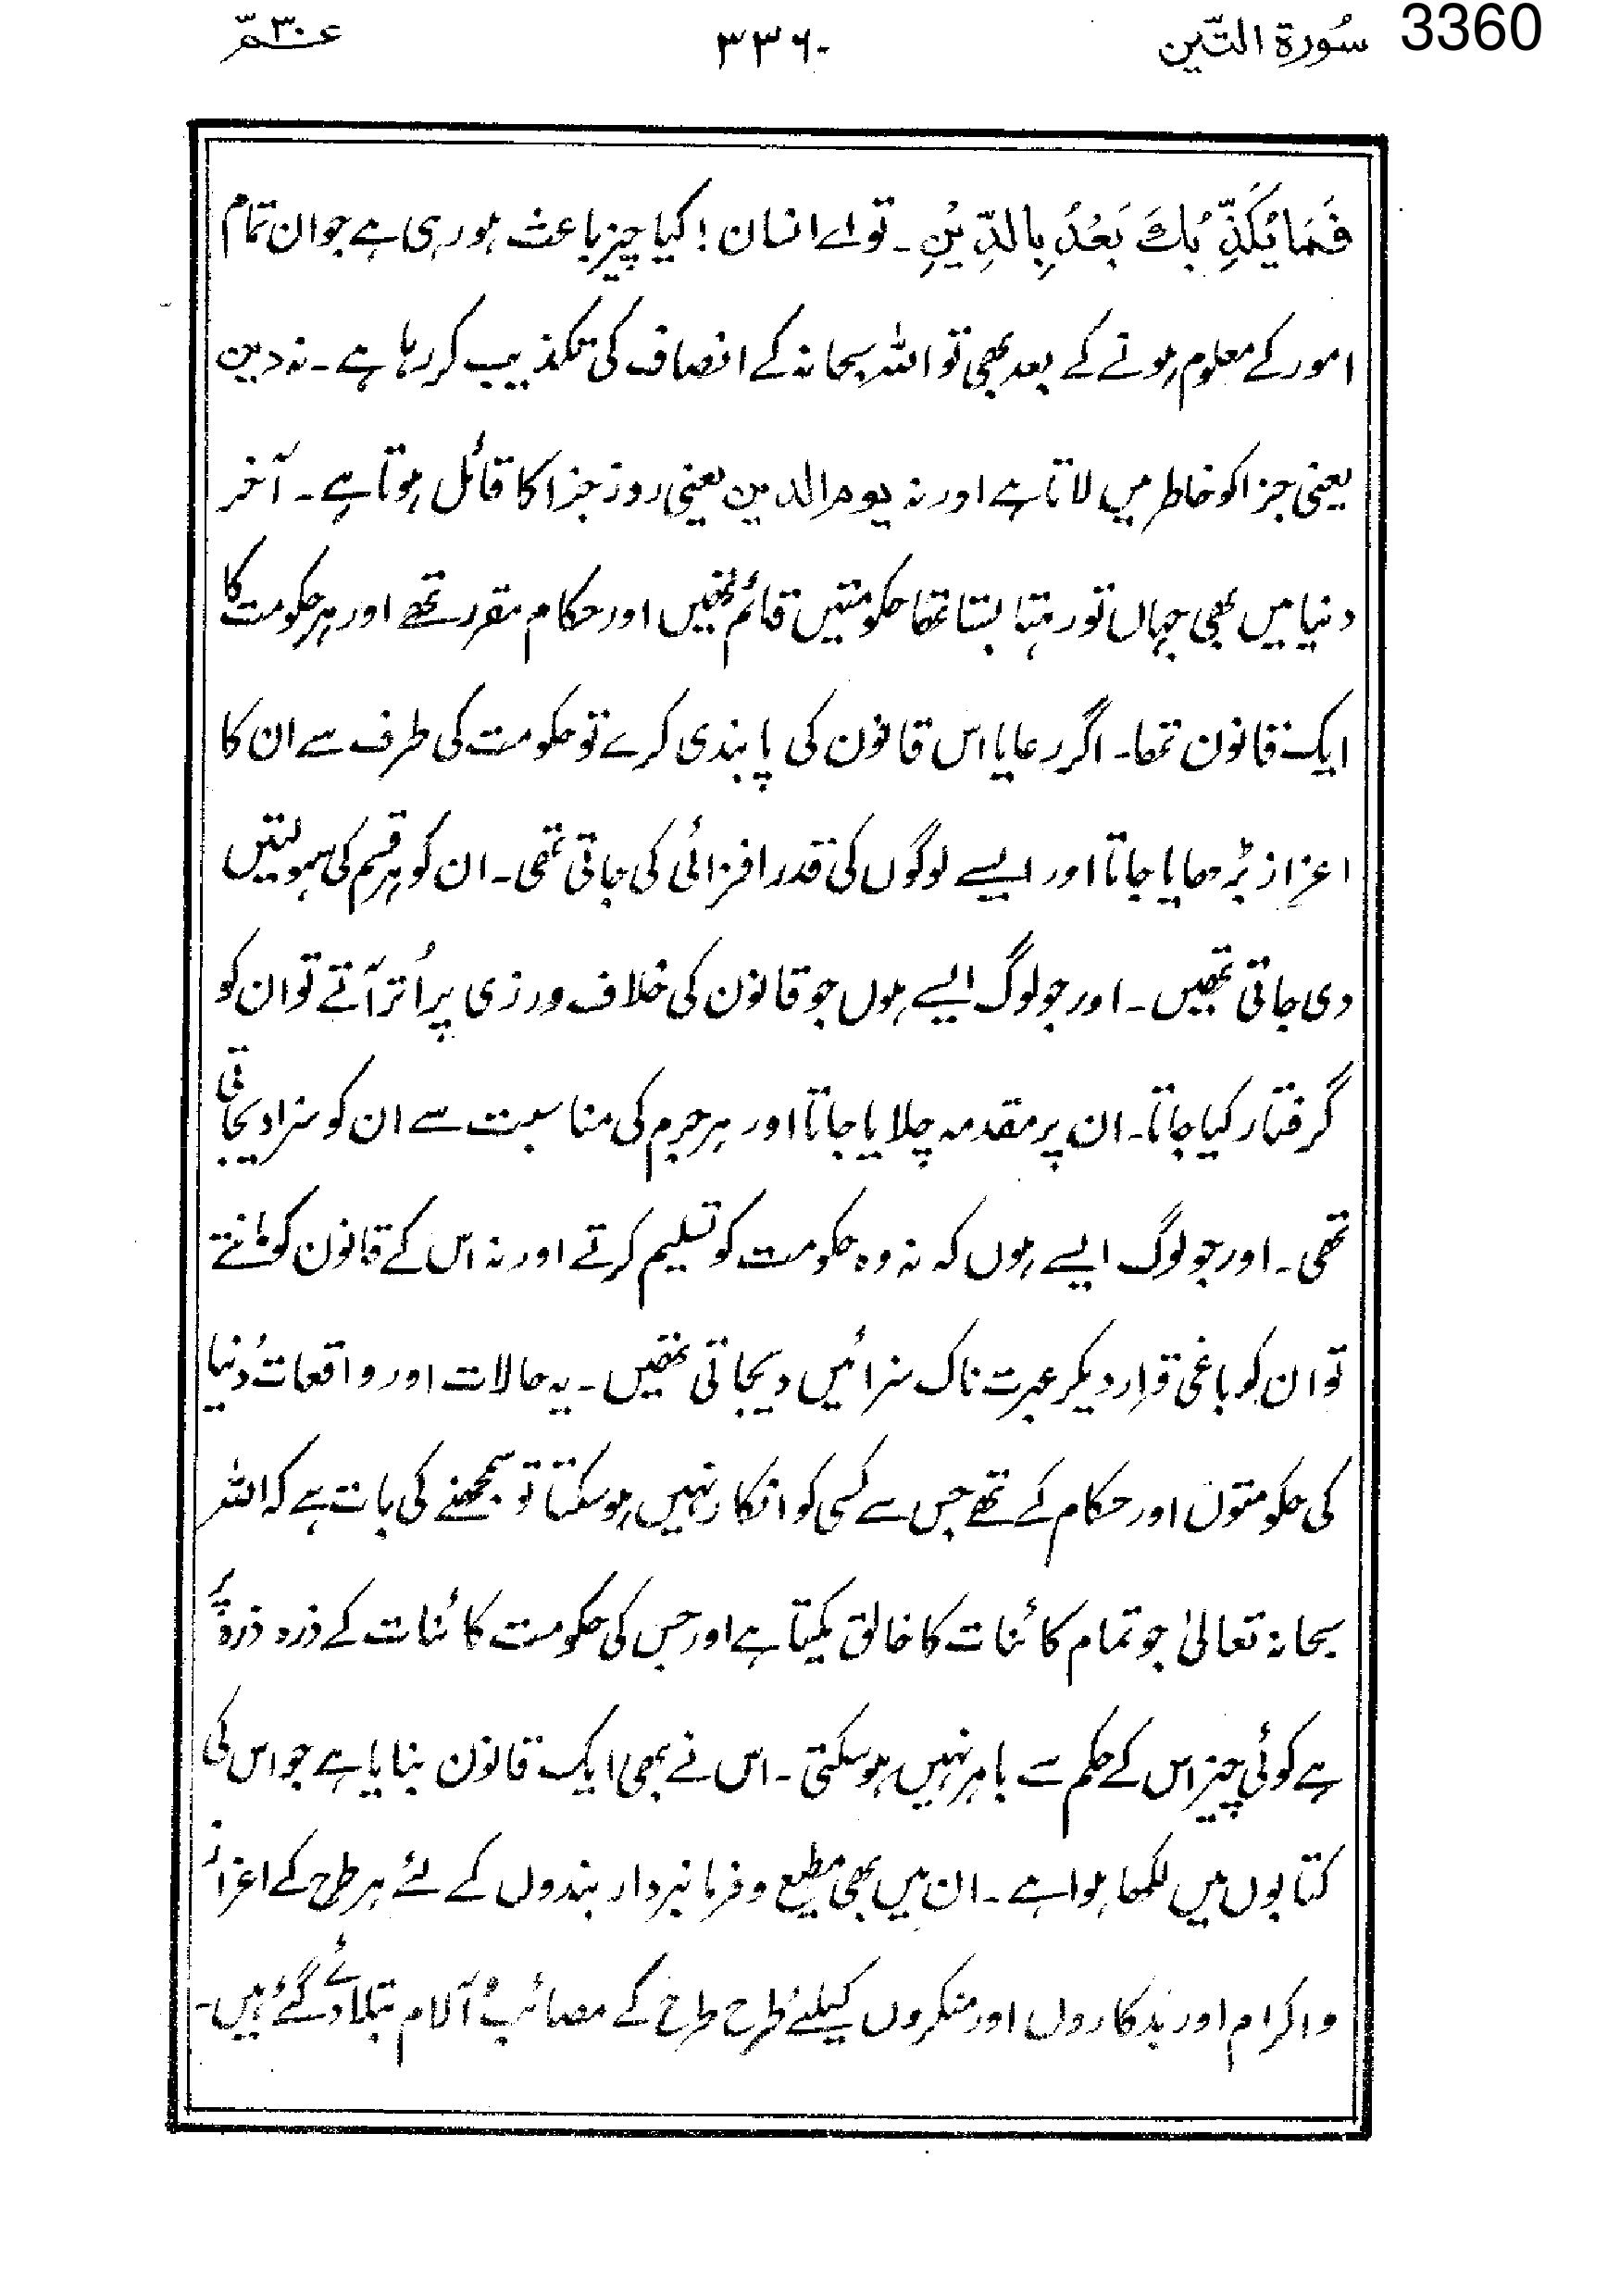 سُورۃ التّین 3360
۳۳۶۰
عـمّ ۳۰
فَمَا یُکَذِّبُكَ بَعْدُ بِالدِّیْنِ۔ تو اے انسان! کیا چیز باعث ہو رہی ہے جو ان تمام
امور کے معلوم ہونے کے بعد بھی تو اللہ سبحانہ کے انصاف کی تکذیب کر رہا ہے۔ نہ دین
یعنی جزا کو خاطر میں لاتا ہے اور نہ یوم الدین یعنی روز جزا کا قائل ہوتا ہے۔ آخر
دنیا میں بھی جہاں تو رہتا بستا تھا حکومتیں قائم تھیں اور حکام مقرر تھے اور ہر حکومت کا
ایک قانون تھا۔ اگر رعایا اس قانون کی پابندی کرے تو حکومت کی طرف سے ان کا
اعزاز بڑھایا جاتا اور ایسے لوگوں کی قدر افزائی کی جاتی تھی۔ ان کو ہر قسم کی سہولتیں
دی جاتی تھیں۔ اور جو لوگ ایسے ہوں جو قانون کی خلاف ورزی پر اُتر آتے تو ان کو
گرفتار کیا جاتا۔ ان پر مقدمہ چلایا جاتا اور ہر جرم کی مناسبت سے ان کو سزا دیجاتی
تھی۔ اور جو لوگ ایسے ہوں کہ نہ وہ حکومت کو تسلیم کرتے اور نہ اس کے قانون کو مانتے
تو ان کو باغی قرار دیکر عبرت ناک سزائیں دیجاتی تھیں۔ یہ حالات اور واقعات دُنیا
کی حکومتوں اور حکام کے تھے جس سے کسی کو انکار نہیں ہو سکتا تو سمجھنے کی بات ہے کہ اللہ
سبحانہ تعالیٰ جو تمام کائنات کا خالق یکتا ہے اور جس کی حکومت کائنات کے ذرہ ذرہ پر
ہے کوئی چیز اس کے حکم سے باہر نہیں ہو سکتی۔ اس نے بھی ایک قانون بنایا ہے جو اس کی
کتابوں میں لکھا ہوا ہے۔ ان میں بھی مطیع و فرمانبردار بندوں کے لئے ہر طرح کے اعزاز
و اکرام اور بدکاروں اور منکروں کیلئے طرح طرح کے مصائب و آلام بتلا دئے گئے ہیں۔